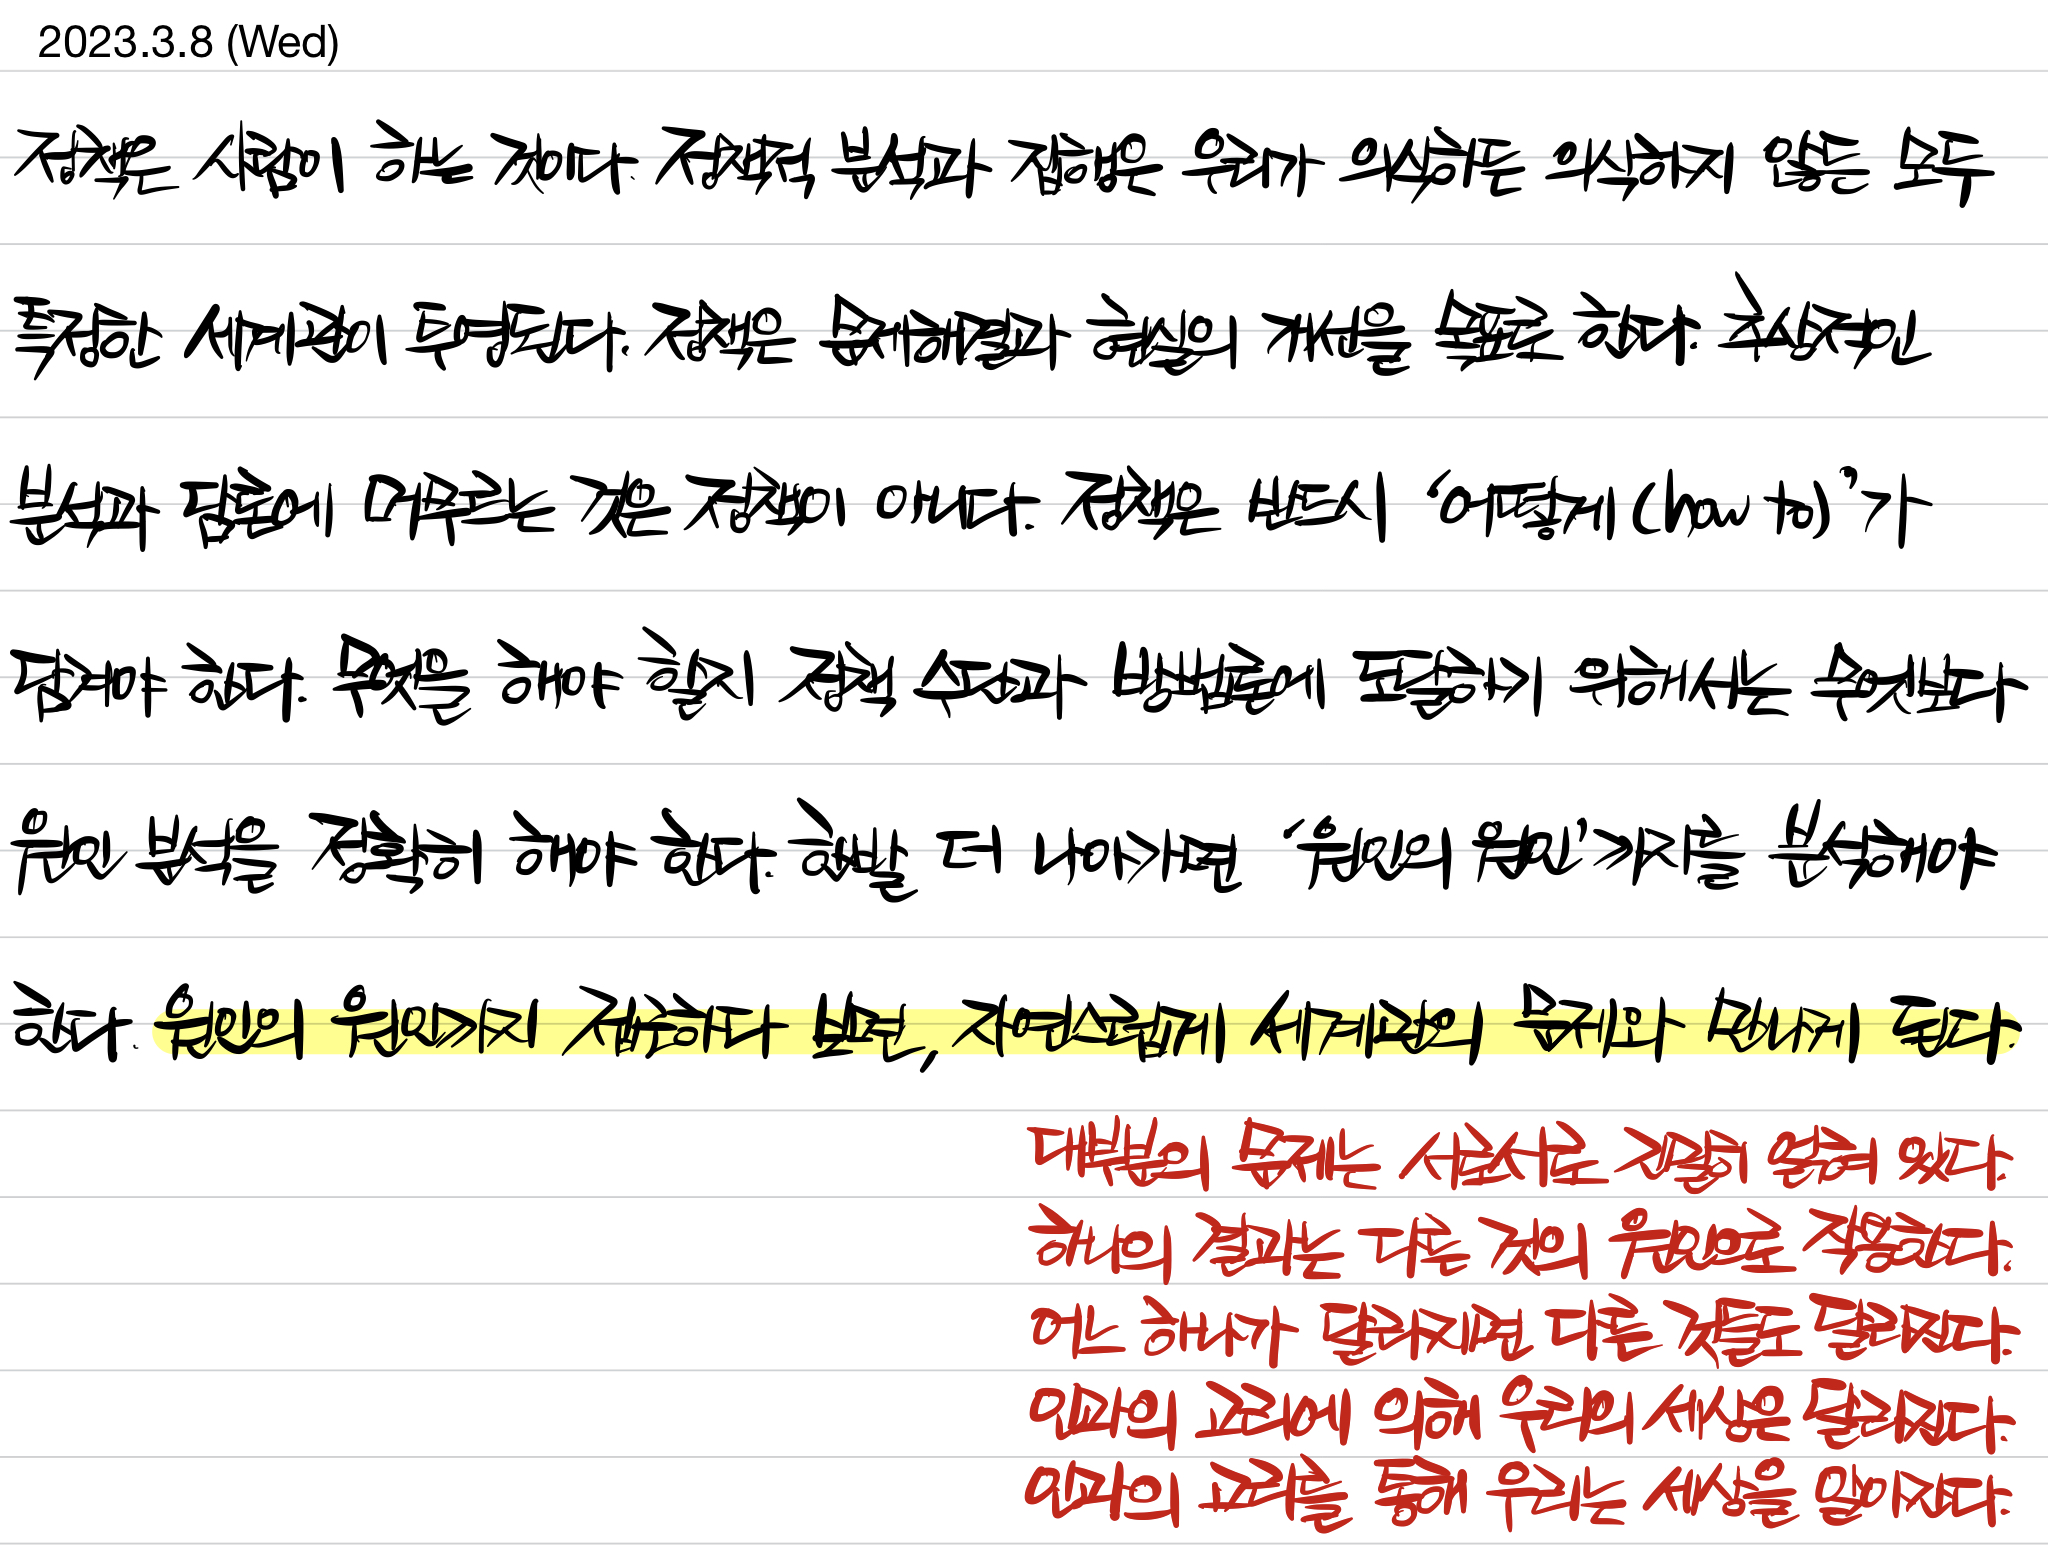 2023.3.8 (Wed)
정책은 사람이 하는 것이다. 정책적 분석과 집행은 우리가 의식하든 의식하지 않든 모두
특정한 세계관이 투영된다. 정책은 문제해결과 현실의 개선을 목표로 한다. 추상적인
분석과 담론에 머무르는 것은 정책이 아니다. 정책은 반드시 '어떻게(how to)'가
담겨야 한다. 무엇을 해야 할지 정책 수단과 방법론에 도달하기 위해서는 무엇보다
원인 분석을 정확히 해야 한다. 한발 더 나아가면 '원인의 원인'까지를 분석해야
한다. 원인의 원인까지 접근하다 보면, 자연스럽게 세계관의 문제와 만나게 된다.
대부분의 문제는 서로서로 긴밀히 얽혀 있다.
하나의 결과는 다른 것의 원인으로 작용한다.
어느 하나가 달라지면 다른 것들도 달라진다.
인과의 고리에 의해 우리의 세상은 달라진다.
인과의 고리를 통해 우리는 세상을 알아간다.